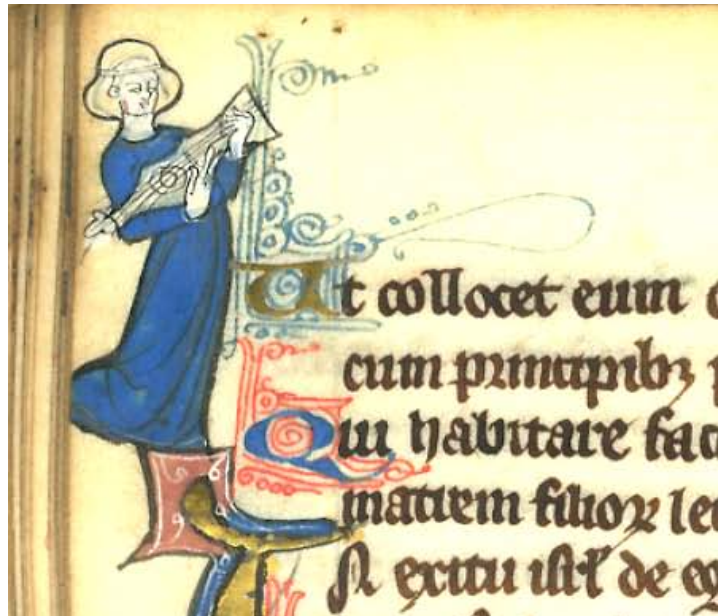 Ut collocet eum
cum principibꝫ
Qui habitare fac
matrem filioꝝ le
N exitu isrł de eg